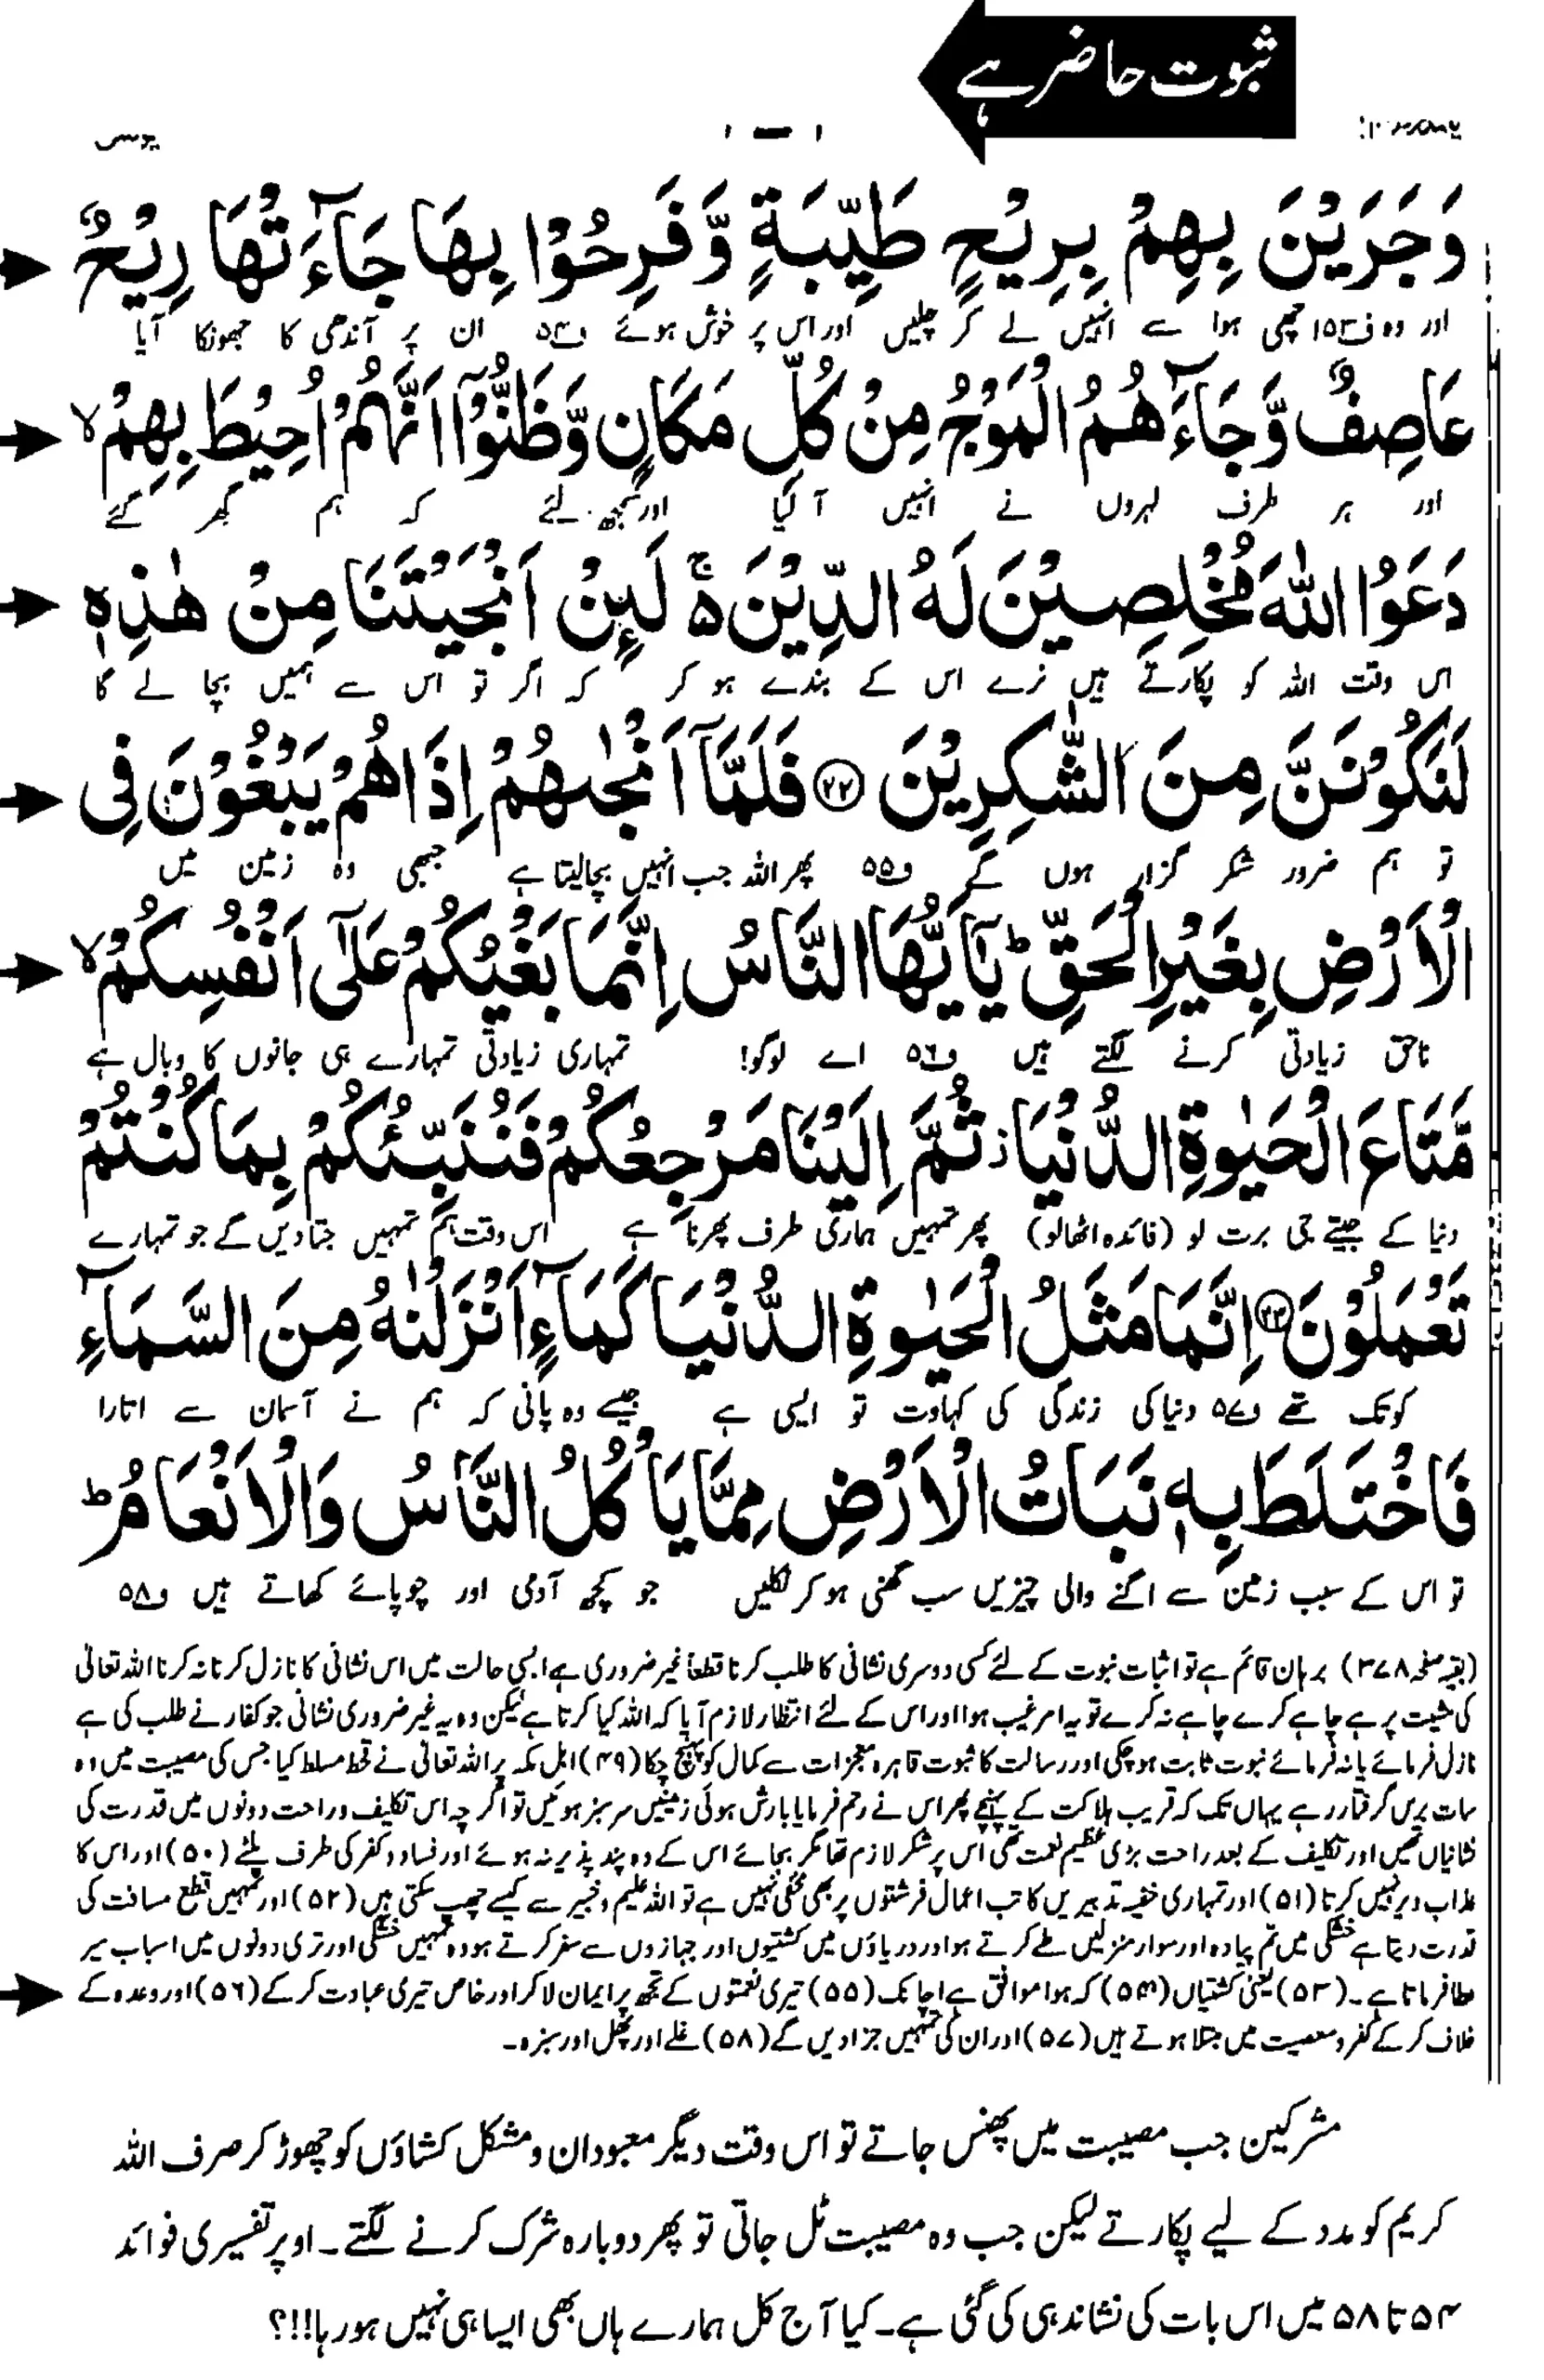 ثبوت حاضر ہے
یونس
وَجَرَيْنَ بِهِمْ بِرِيْحٍ طَيِّبَةٍ وَّفَرِحُوْا بِهَا جَآءَتْهَا رِيْحٌ
اور وہ ف۵۳ اچھی ہوا سے انہیں لے کر چلیں اور اس پر خوش ہوئے ف۵۴ ان پر آندھی کا جھونکا آیا
عَاصِفٌ وَّجَآءَهُمُ الْمَوْجُ مِنْ كُلِّ مَكَانٍ وَّظَنُّوْٓا اَنَّهُمْ اُحِيْطَ بِهِمْ ۙ
اور ہر طرف لہروں نے انہیں آ لیا اور سمجھ لئے کہ ہم گھر گئے
دَعَوُا اللّٰهَ مُخْلِصِيْنَ لَهُ الدِّيْنَ ۚ لَىِٕنْ اَنْجَيْتَنَا مِنْ هٰذِهٖ
اس وقت اللہ کو پکارتے ہیں نرے اس کے بندے ہو کر کہ اگر تو اس سے ہمیں بچا لے گا
لَنَكُوْنَنَّ مِنَ الشّٰكِرِيْنَ ﴿۲۲﴾ فَلَمَّآ اَنْجٰىهُمْ اِذَا هُمْ يَبْغُوْنَ فِى
تو ہم ضرور شکر گزار ہوں گے ف۵۵ پھر اللہ جب انہیں بچا لیتا ہے جبھی وہ زمین میں
الْاَرْضِ بِغَيْرِ الْحَقِّ ؕ يٰٓاَيُّهَا النَّاسُ اِنَّمَا بَغْيُكُمْ عَلٰٓى اَنْفُسِكُمْ ۙ
ناحق زیادتی کرنے لگتے ہیں ف۵۶ اے لوگو! تمہاری زیادتی تمہارے ہی جانوں کا وبال ہے
مَّتَاعَ الْحَيٰوةِ الدُّنْيَا ؗ ثُمَّ اِلَيْنَا مَرْجِعُكُمْ فَنُنَبِّئُكُمْ بِمَا كُنْتُمْ
دنیا کے جیتے جی برت لو (فائدہ اٹھالو) پھر تمہیں ہماری طرف پھرنا ہے اس وقت ہم تمہیں جتا دیں گے جو تمہارے
تَعْمَلُوْنَ ﴿۲۳﴾ اِنَّمَا مَثَلُ الْحَيٰوةِ الدُّنْيَا كَمَآءٍ اَنْزَلْنٰهُ مِنَ السَّمَآءِ
کوتک تھے ف۵۷ دنیا کی زندگی کی کہاوت تو ایسی ہے جیسے وہ پانی کہ ہم نے آسمان سے اتارا
فَاخْتَلَطَ بِهٖ نَبَاتُ الْاَرْضِ مِمَّا يَاْكُلُ النَّاسُ وَالْاَنْعَامُ ؕ
تو اس کے سبب زمین سے اگنے والی چیزیں سب گھنی ہو کر نکلیں جو کچھ آدمی اور چوپائے کھاتے ہیں ف۵۸
(بقیہ صفحہ ۳۷۸) برہان قائم ہے تو اثبات نبوت کے لئے کسی دوسری نشانی کا طلب کرنا قطعاً غیر ضروری ہے ایسی حالت میں اس نشانی کا نازل کرنا نہ کرنا اللہ تعالیٰ
کی مشیت پر ہے چاہے کرے چاہے نہ کرے تو یہ امر غیب ہوا اور اس کے لئے انتظار لازم آیا کہ اللہ کیا کرتا ہے لیکن وہ یہ غیر ضروری نشانی جو کفار نے طلب کی ہے
نازل فرمائے یا نہ فرمائے نبوت ثابت ہو چکی اور رسالت کا ثبوت قاہرہ معجزات سے کمال کو پہنچ چکا (۴۹) اہل مکہ پر اللہ تعالیٰ نے قحط مسلط کیا جس کی مصیبت میں وہ
سات برس گرفتار رہے یہاں تک کہ قریب ہلاکت کے پہنچے پھر اس نے رحم فرمایا بارش ہوئی زمینیں سرسبز ہوئیں تو اگرچہ اس تکلیف و راحت دونوں میں قدرت کی
نشانیاں تھیں اور تکلیف کے بعد راحت بڑی عظیم نعمت تھی اس پر شکر لازم تھا مگر بجائے اس کے وہ پند پذیر نہ ہوئے اور فساد و کفر کی طرف پلٹے (۵۰) اور اس کا
عذاب دیر نہیں کرتا (۵۱) اور تمہاری خفیہ تدبیریں کاتب اعمال فرشتوں پر بھی مخفی نہیں ہے تو اللہ علیم و خبیر سے کیسے چھپ سکتی ہیں (۵۲) اور تمہیں قطع مسافت کی
قدرت دیتا ہے خشکی میں تم پیادہ اور سوار منزلیں طے کرتے ہو اور دریاؤں میں کشتیوں اور جہازوں سے سفر کرتے ہو وہ تمہیں خشکی اور تری دونوں میں اسباب سیر
عطا فرماتا ہے۔ (۵۳) یعنی کشتیاں (۵۴) کہ ہوا موافق ہے اچانک (۵۵) تیری نعمتوں کے تجھ پر ایمان لا کر اور خاص تیری عبادت کر کے (۵۶) اور وعدہ کے
خلاف کر کے کفر و معصیت میں مبتلا ہوتے ہیں (۵۷) اور ان کی تمہیں جزا دیں گے (۵۸) غلے اور پھل اور سبزہ۔
مشرکین جب مصیبت میں پھنس جاتے تو اس وقت دیگر معبودان و مشکل کشاؤں کو چھوڑ کر صرف اللہ
کریم کو مدد کے لیے پکارتے لیکن جب وہ مصیبت ٹل جاتی تو پھر دوبارہ شرک کرنے لگتے۔ اوپر تفسیری فوائد
۵۴ تا ۵۸ میں اس بات کی نشاندہی کی گئی ہے۔ کیا آج کل ہمارے ہاں بھی ایسا ہی نہیں ہو رہا!!!؟